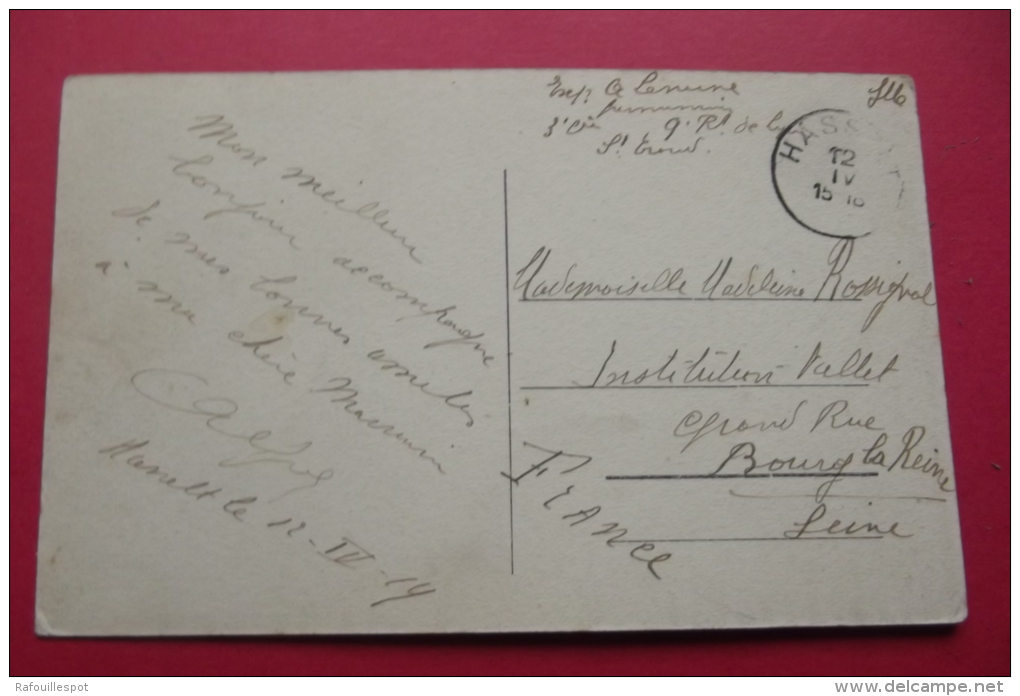 Exp. A Lemme
3e Cie 9e Rt de
St. Trond.
HASS
12
IV
15
Mon meilleur
bonjour accompagne
de mes bonnes amitiés
à ma chère
Hasselt le 12-IV-19
Mademoiselle Madeleine Rossignol
Institution Vallet
Grand Rue
Bourg la Reine
Seine
FRANCE
Rafouillespot
www.delcampe.net